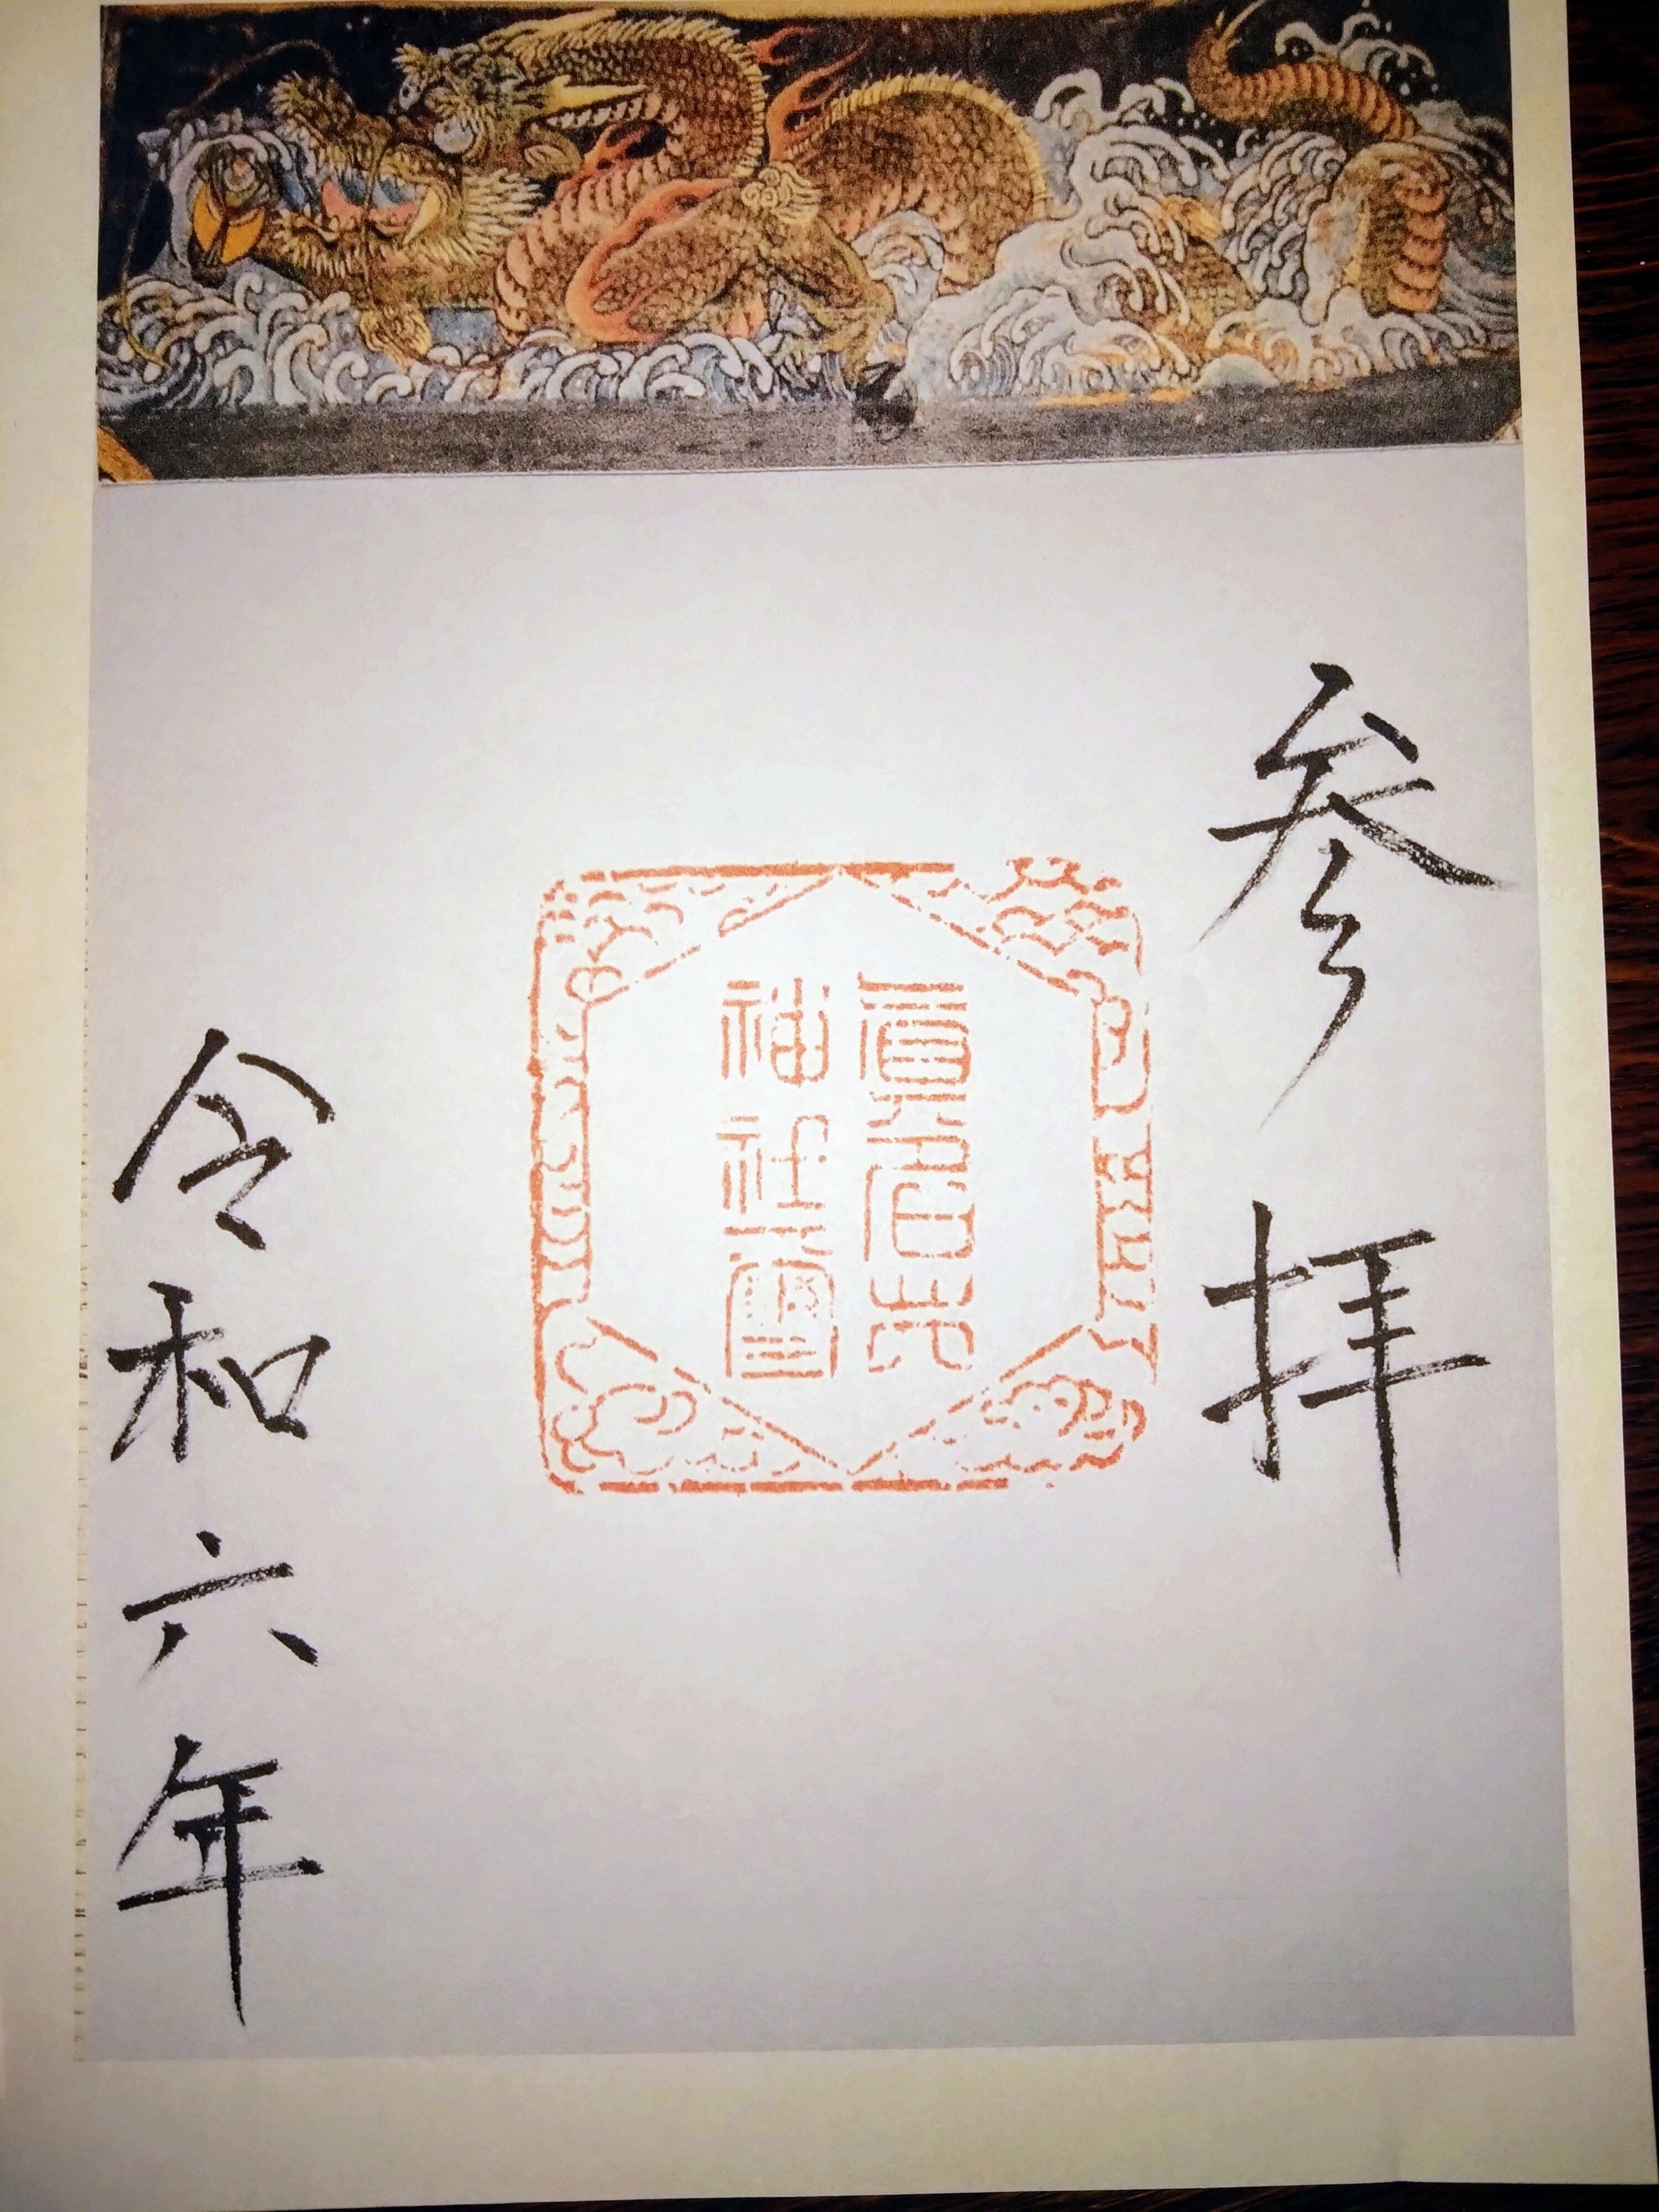 参拝
神社璽
令和六年